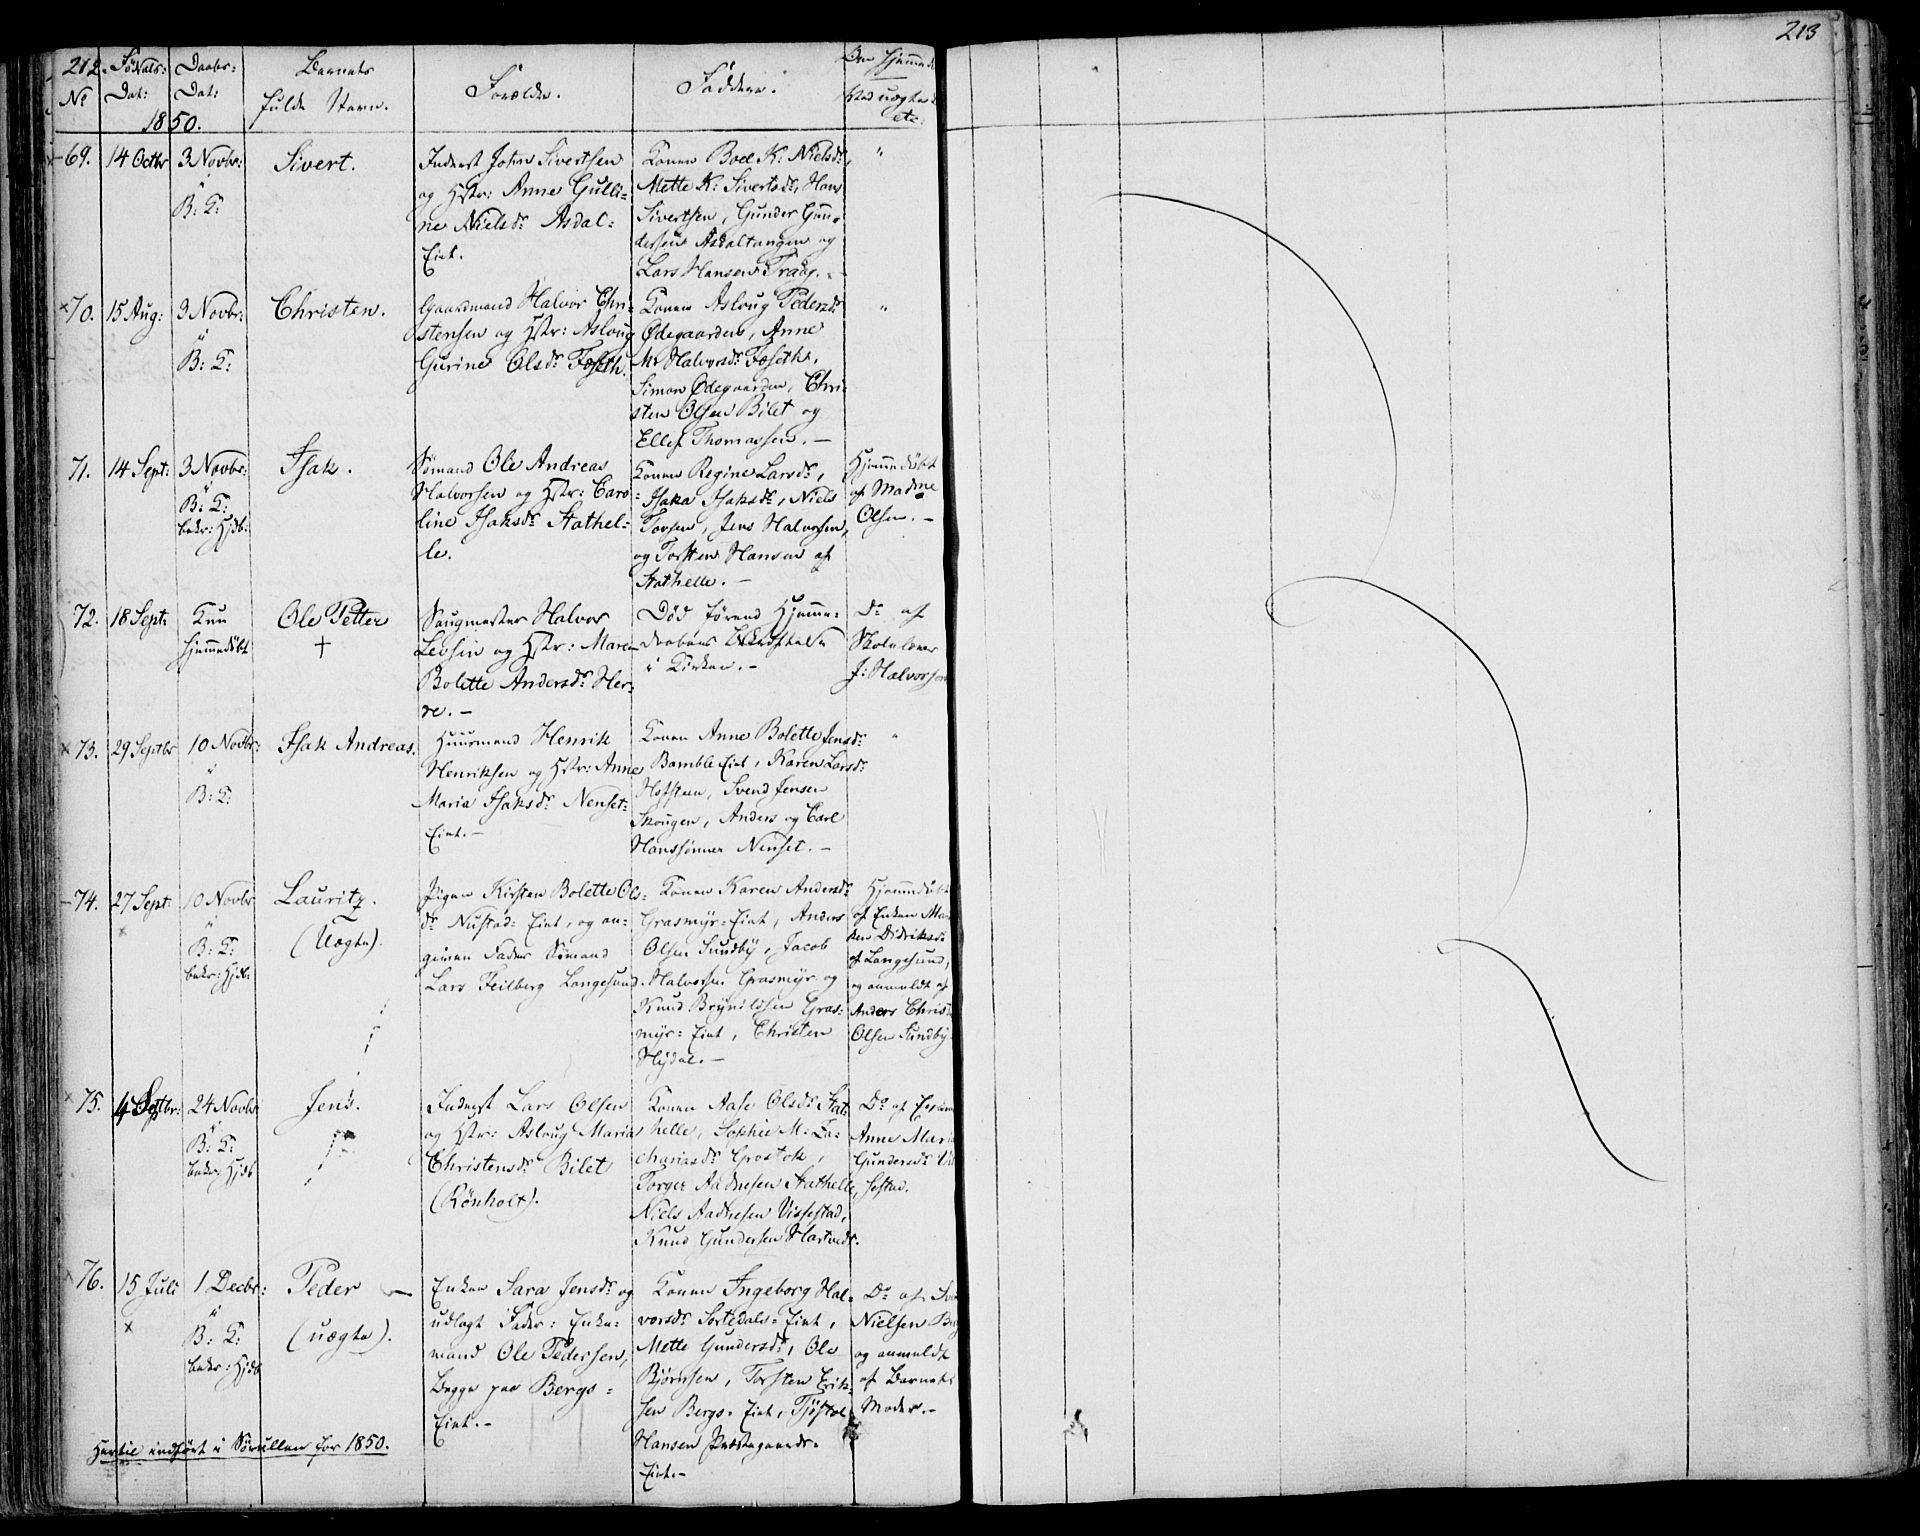 212.
Fødsels-
Dat:
Daabs-
Dat:
Barnets
fulde Navn.
Forældre.
Faddere.
Om hjemme d.
No
1850.
etc.
213
69.
14 Octbr
3 Novbr:
B: K:
Sivert.
Inderst John Sivertsen
og Hstr: Anne Gulli-
ne Nielsdr Asdal-
Eiet.
Konen Boel K: Nielsdr,
Mette K: Sivertsdr, Hans
Sivertsen, Gunder Gun-
dersen Asdaltangen og
Lars Hansen Traag. -
"
70.
15 Aug:
3 Novbr:
B: K:
Christen.
Gaardmand Halvor Chri-
stensen og Hstr: Asloug
Gurine Olsdr Foseth.
Konen Asloug Pedersdr
Ødegaarden, Anne
Mr Halvorsdr Foseth,
Simon Ødegaarden, Chri-
sten Olsen Bilet og
Ellef Thomassen. -
"
71.
14 Sept:
3 Novbr:
B: K:
bekr: Hjdb:
Isak.
Sømand Ole Andreas
Halvorsen og Hstr: Caro-
line Isaksdr Stathel-
le.
Konen Regine Larsdr,
Isaka Isaksdr, Niels
Torsen, Jens Halvorsen,
og Torsten Hansen af
Stathelle. -
Hjemmedøbt
af Madme
Olsen. -
72.
18 Sept:
Kun
hjemmedøbt
Ole Petter
+
Saugmester Halvor
Levsin og Hstr: Maren
Bolette Andersdr Her-
re. -
Død førend Hjemme-
daabens Bekræftelse
i Kirken. -
Do af
Skolelærer
J: Halvorsen
73.
29 Septbr
10 Novbr:
B: K:
Isak Andreas.
Huusmand Henrik
Henriksen og Hstr: Anne
Maria Isaksdr Nenset-
Eiet. -
Konen Anne Bolette Jensdr
Bamble Eiet, Karen Larsdr
Hofsteen, Svend Jensen
Skougen, Anders og Carl
Hanssønner Nenset. -
"
74.
27 Sept:
10 Novbr
B: K:
bekr: Hjdb:
Lauritz.
(Uægte).
Pigen Kirsten Bolette Ols-
dr Nustad-Eiet, og an-
given Fader Sømand
Lars Feilberg Langesund.
Konen Karen Andersdr
Grasmyr-Eiet, Anders
Olsen Sundby, Jacob
Halvorsen Grasmyr og
Knud Brynildsen Gras-
myr-Eiet, Christen
Hydal. -
Hjemmedøbt
af Enken Ma
ren Didriksdr
af Langesund,
og anmeldt af
Anders Christ
Olsen Sundby.
75.
4 Septbr:
24 Novbr
B: K:
bekr: Hjdb
Jens.
Inderst Lars Olsen
og Hstr: Asloug Maria
Christensdr Bilet
(Rønholt).
Konen Aase Olsdr Stat-
helle, Sophie M: Za-
chariasdr Grostok,
Torger Aadnesen Stathelle,
Niels Aadnesen Vissestad,
Knud Gundersen Hartvedt.
Do af
Anne Maria
Gundersdr Vis
sestad.
76.
15 Juli
1 Decbr:
B: K:
bekr: Hjdb
Peder -
(uægte).
Enken Sara Jensdr og
udlagt Fader: Enke-
mand Ole Pedersen,
begge paa Bergs-
Eiet. -
Konen Ingeborg Hal-
vorsdr Sortedals-Eiet,
Mette Gundersdr, Ole
Bjørnsen, Torsten Erik-
sen Bergs-Eiet, Tjøstol
Hansen Præstegaards-
Eiet. -
Do af
Nielsen
og anmeldt
af Barnets
Moder. -
Hertil indført i Sørullen for 1850.